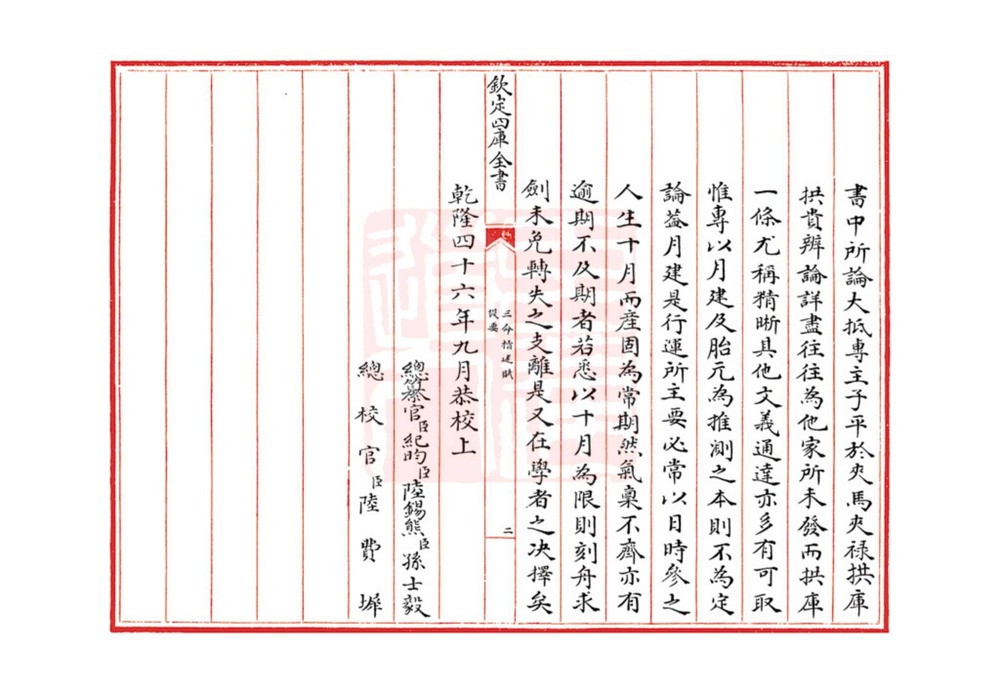 書中所論大抵専主子平於夾馬夾禄拱庫
拱貴辨論詳盡往往為他家所未發而拱庫
一條尤稱精晰其他文義通達亦多有可取
惟専以月建及胎元為推測之本則不為定
論葢月建是行運所主要必常以日時參之
人生十月而產固為常期然氣稟不齊亦有
逾期不及期者若悉以十月為限則刻舟求
劍未免轉失之支離是又在學者之决擇矣
欽定四庫全書
三命指迷賦
提要
二
乾隆四十六年九月恭校上
總纂官臣紀昀臣陸錫熊臣孫士毅
總校官臣陸費墀